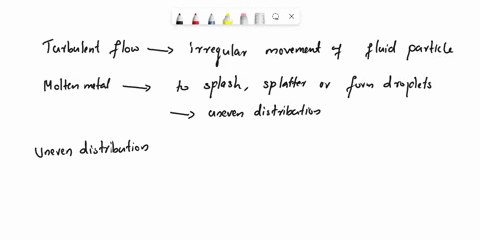 Turbulent flow → irregular movement of fluid particle
Molten metal → to splash, splatter or form droplets
→ uneven distribution
Uneven distribution